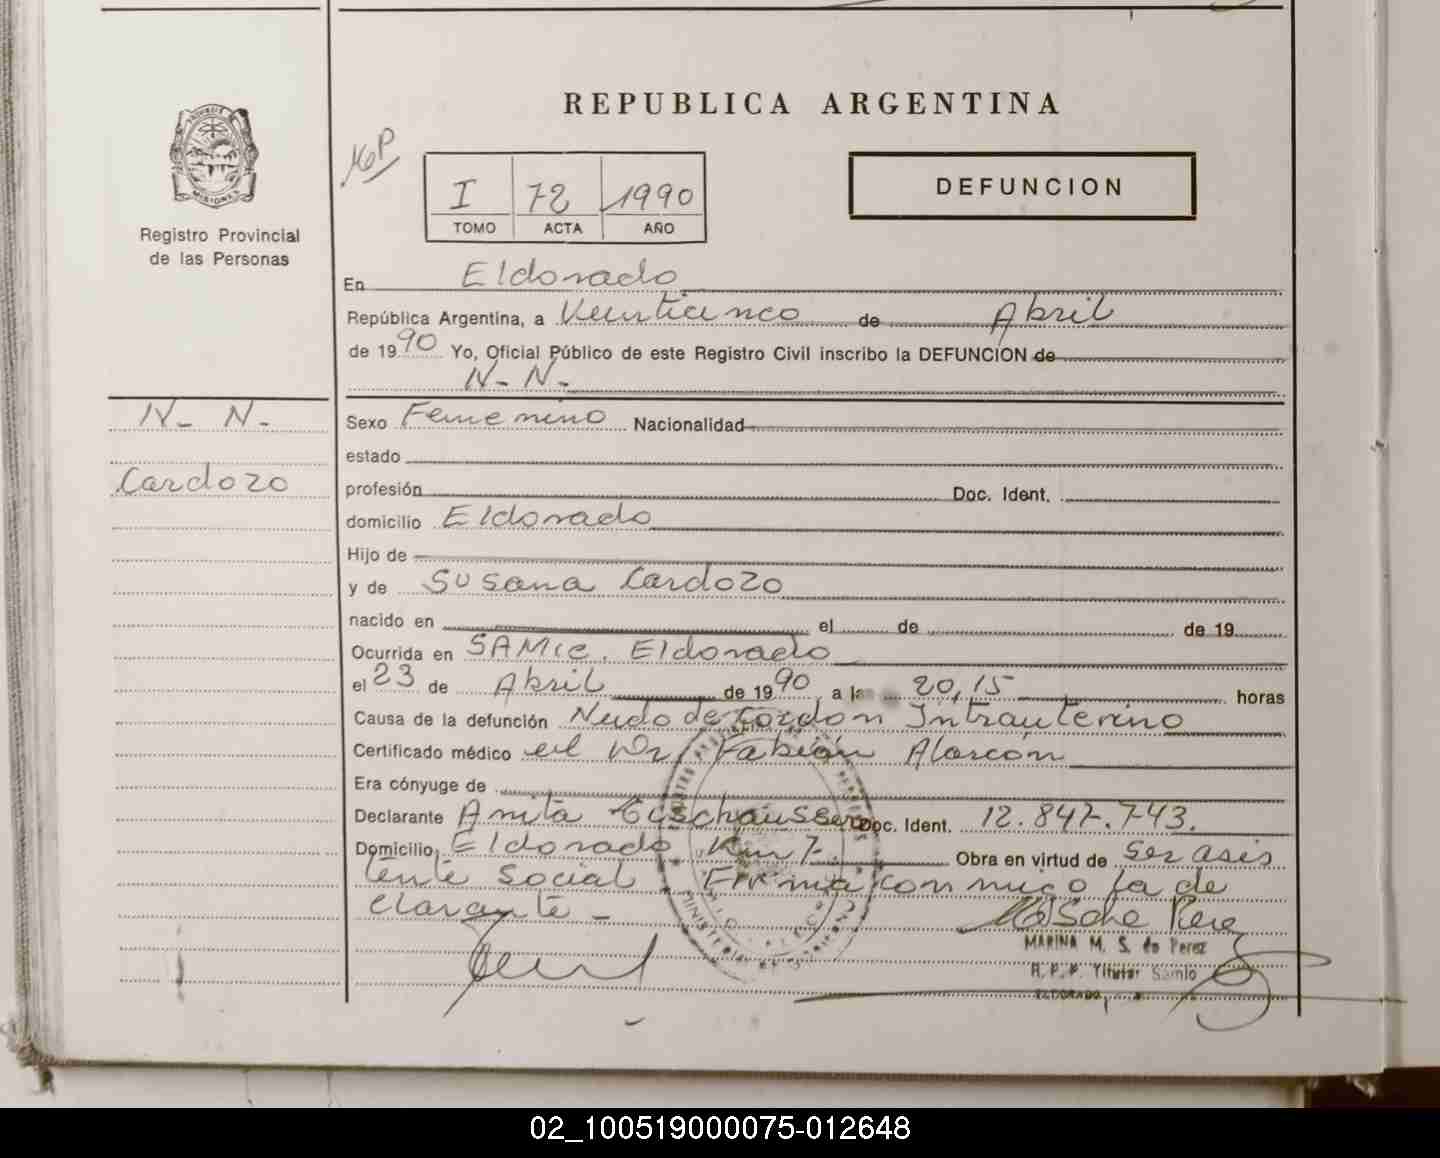 REPUBLICA ARGENTINA
I 72 1990
TOMO ACTA AÑO
DEFUNCION
PROVINCIA DE
MISIONES
Registro Provincial
de las Personas
N- N-
Cardozo
En Eldorado
República Argentina, a Veinticinco de Abril
de 1990 Yo, Oficial Público de este Registro Civil inscribo la DEFUNCION de
N- N-
Sexo Femenino Nacionalidad
estado
profesión Doc. Ident.
domicilio Eldorado
Hijo de
y de Susana Cardozo
nacido en el de de 19
Ocurrida en SAMIC. Eldorado
el 23 de Abril de 1990 a las 20,15 horas
Causa de la defunción Nudo de Cordon Intrauterino
Certificado médico del Dr. Fabián Alarcón
Era cónyuge de
Declarante Anita Doc. Ident. 12.847.743.
Domicilio Eldorado Km 7. Obra en virtud de ser asis
tente Social. Firma conmigo la de
clarante -
MARINA M. S. de Perez
ELDORADO
02_100519000075-012648